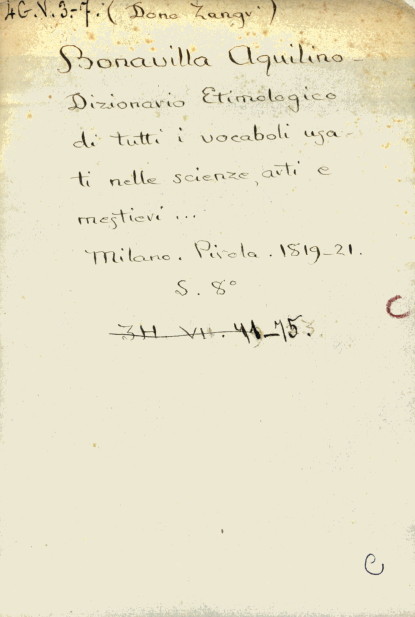 4G.V.3-7. (Dono Zangri)
Bonavilla Aquilino -
Dizionario Etimologico
di tutti i vocaboli usa-
ti nelle scienze, arti e
mestieri ...
Milano. Pirola. 1819-21.
S. 8°
3H. VII. 41-75.
C
C